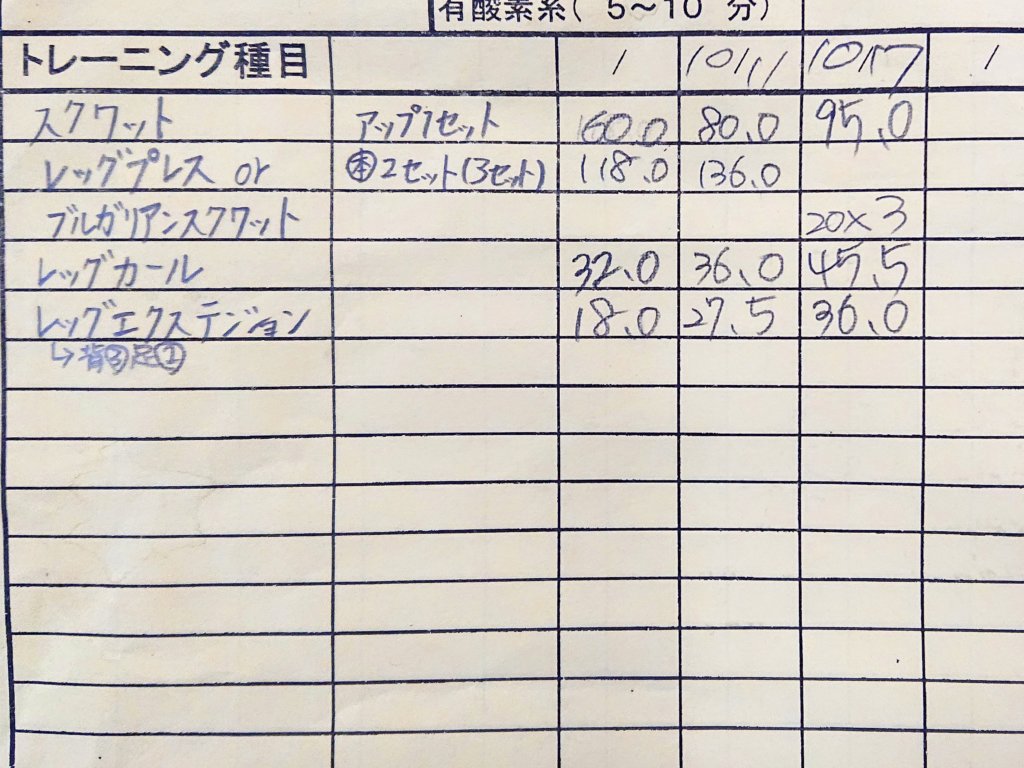 有酸素系( 5〜10 分)
トレーニング種目 / 10/11 10/17 /
スクワット アップ1セット 60.0 80.0 95.0
レッグプレス or ㊍2セット(3セット) 118.0 136.0
ブルガリアンスクワット 20×3
レッグカール 32.0 36.0 45.5
レッグエクステンション 18.0 27.5 36.0
↳背③足①